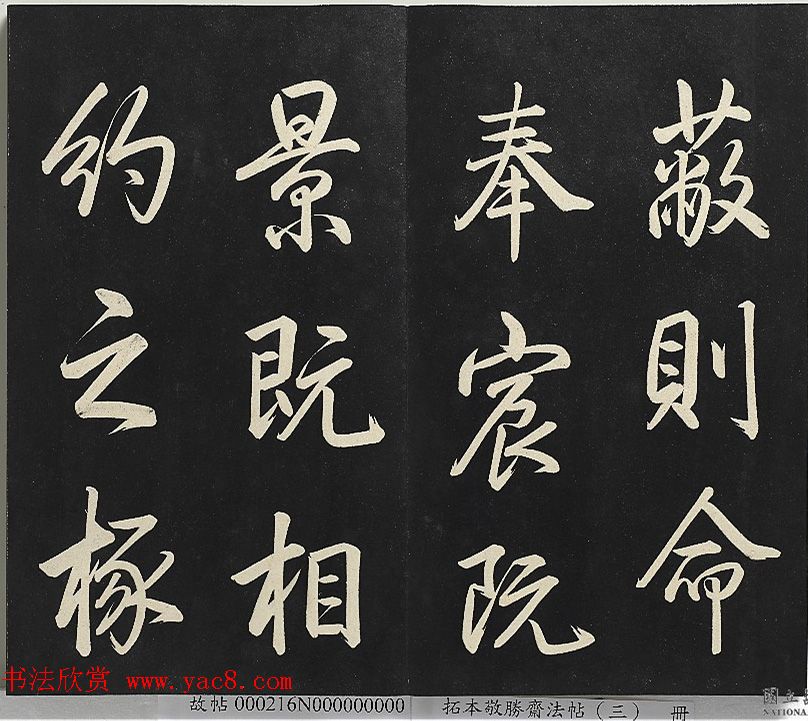 蔽則命
奉宸阮
景既相
約之椓
书法欣赏 www.yac8.com
故帖 000216N000000000
拓本敬勝齋法帖(三) 冊
國立
NATIONA